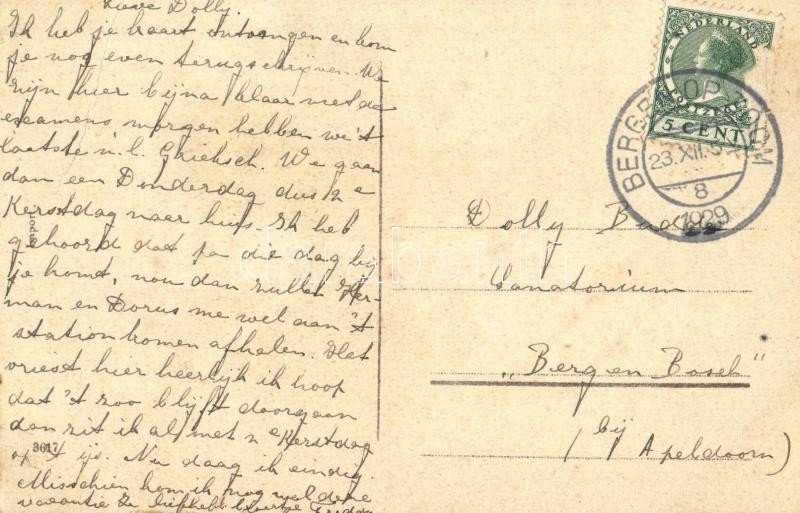 Lieve Dolly.
Ik heb je kaart ontvangen en kom
je nog even terugschrijven. We
zijn hier bijna klaar met de
examens morgen hebben we 't
laatste n.l. Grieksch. We gaan
dan een Donderdag dus 2e
Kerstdag naar huis. Ik heb
gehoord dat pa die dag bij
je komt, nou dan zullen Her-
man en Dorus me wel aan 't
station komen afhalen. Het
vriest hier heerlijk ik hoop
dat 't zoo blijft doorgaan
dan zit ik al met 2e Kerstdag
op 't ijs. Nu daag ik eindig.
Misschien kom ik nog wel deze
vacantie
3617
NEDERLAND
POSTZEGEL
5 CENT
BERGEN OP ZOOM
23.XII.
8
1929
Dolly
Sanatorium
"Berg en Bosch"
(bij Apeldoorn)
darabanth